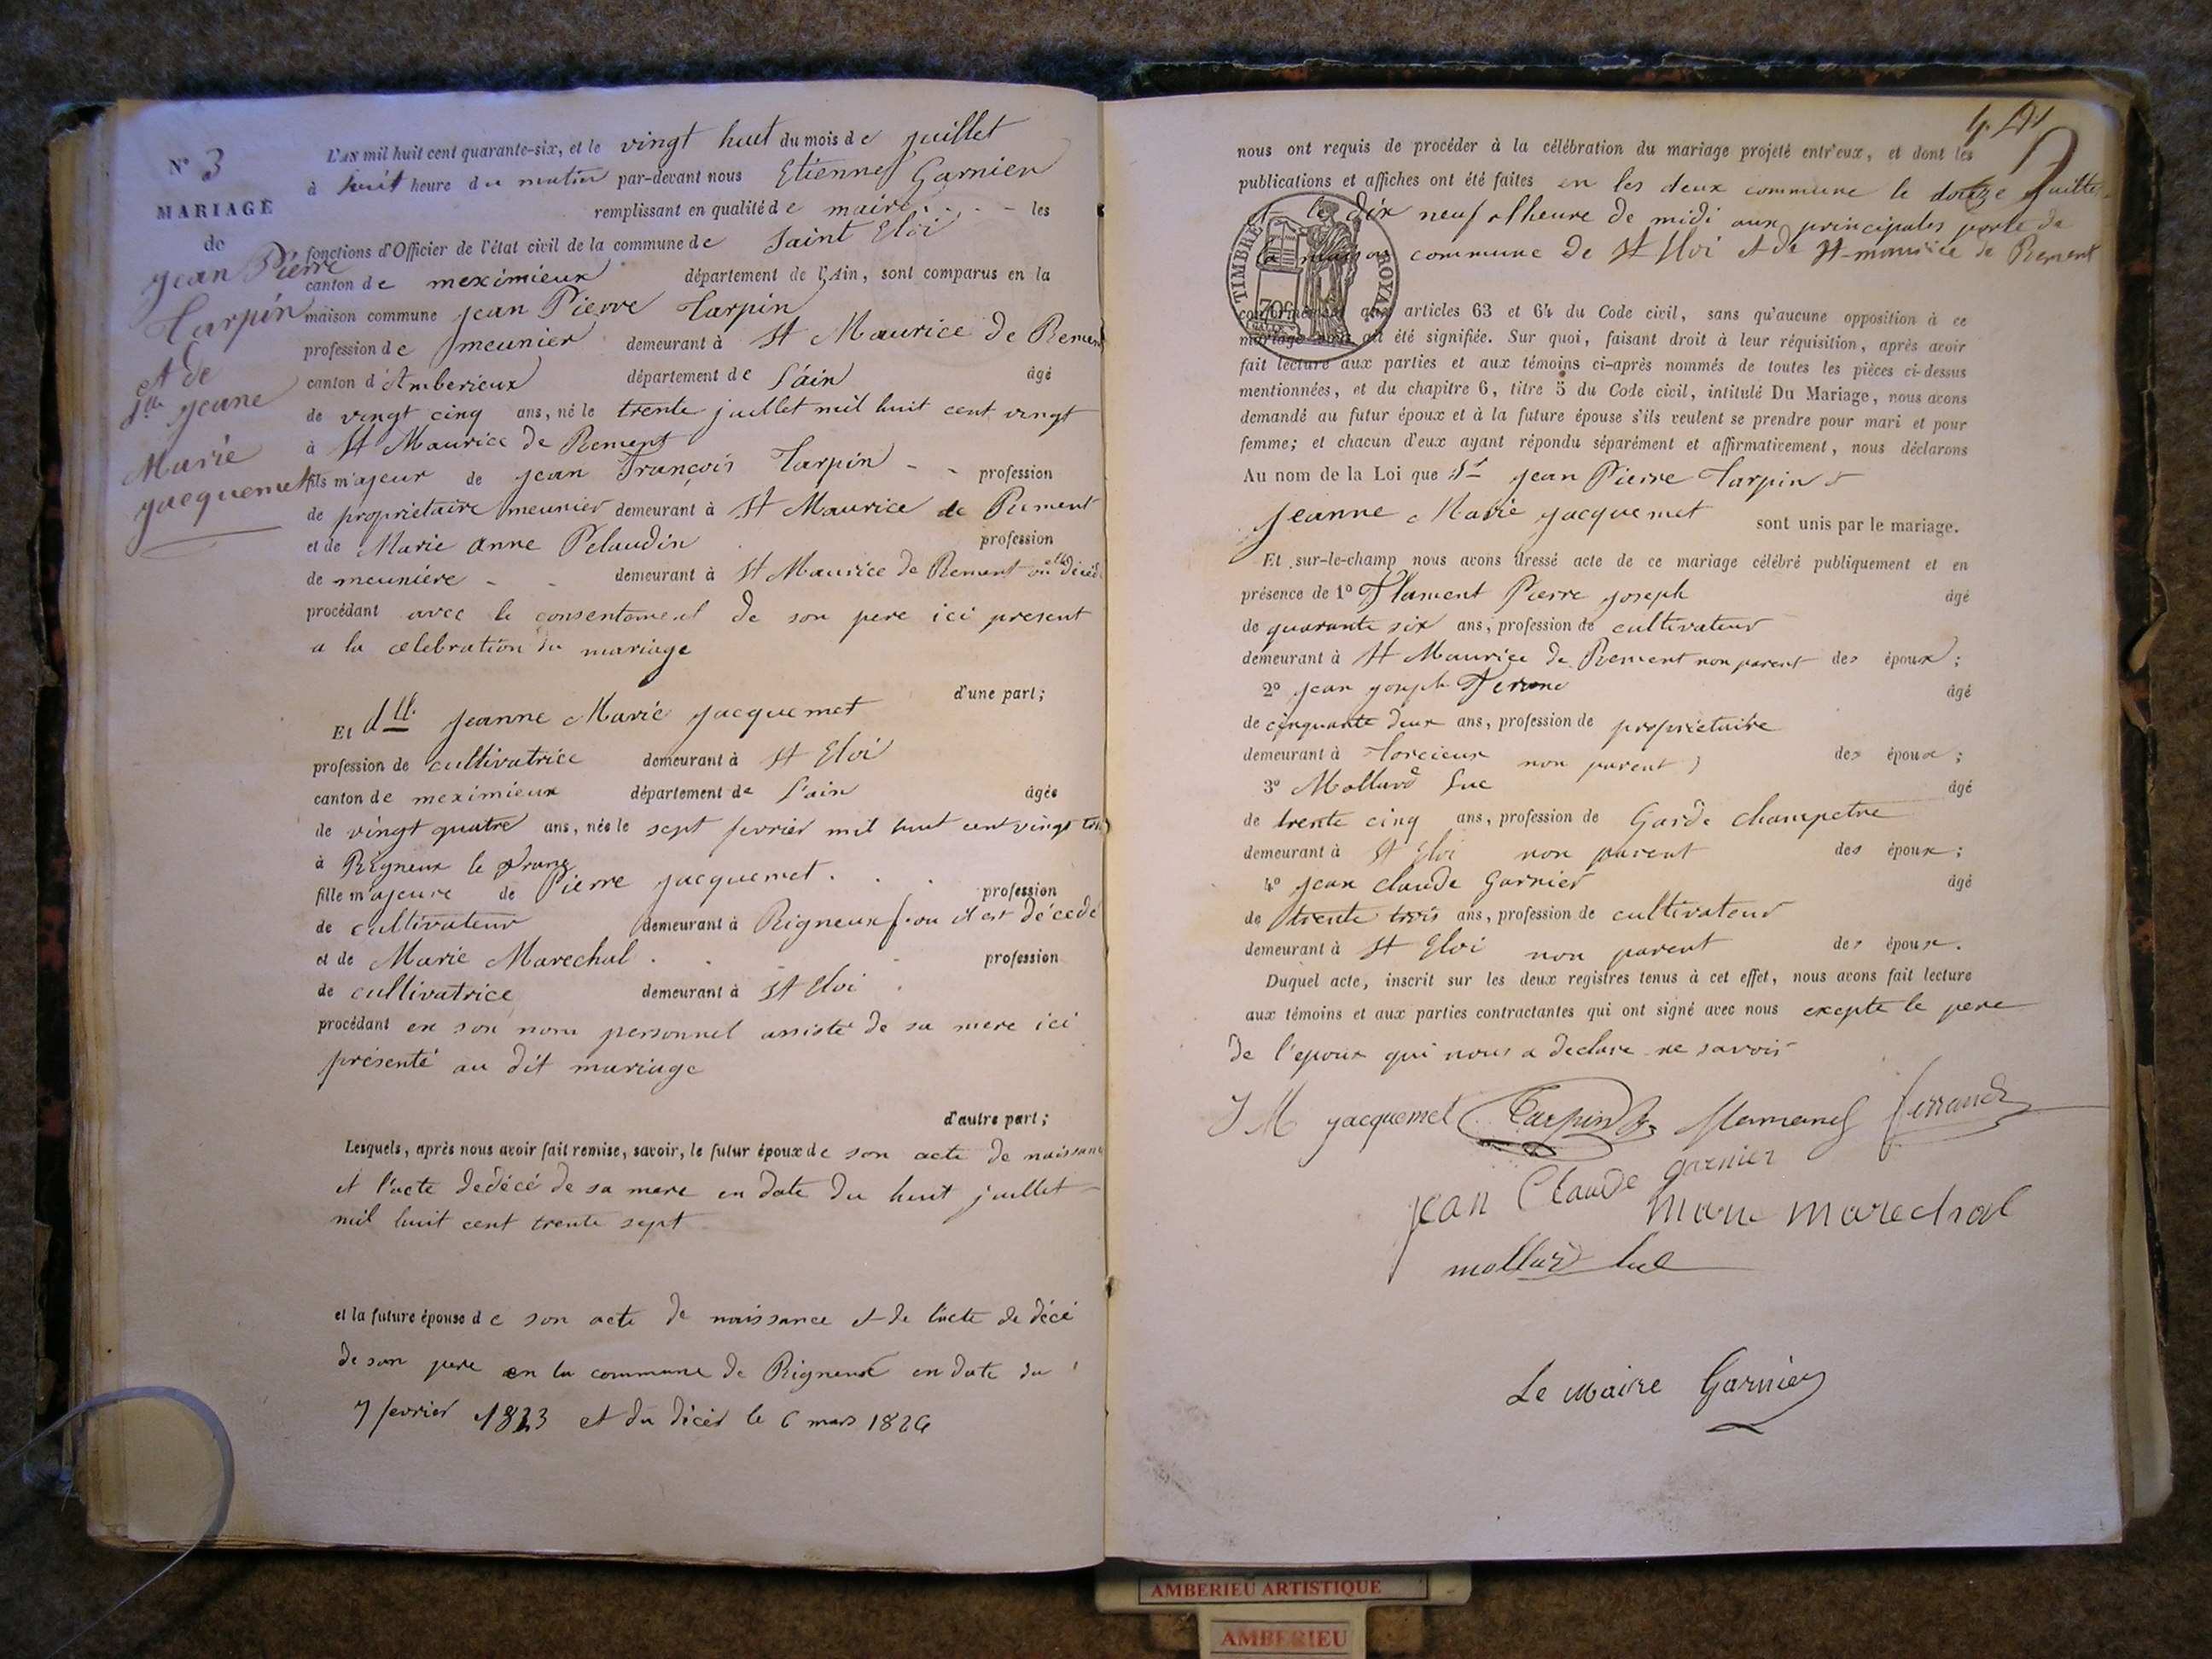 N° 3
MARIAGE
de
Jean Pierre
Tarpin
et de
dlle Jeanne
Marie
Jacquemet
L'an mil huit cent quarante-six, et le vingt huit du mois de juillet
à huit heure du matin par-devant nous Etienne Garnier
remplissant en qualité de maire les
fonctions d'Officier de l'état civil de la commune de Saint Eloi
canton de meximieux département de l'Ain, sont comparus en la
maison commune Jean Pierre Tarpin
profession de meunier demeurant à St Maurice de Rement
canton d'Amberieux département de l'ain âgé
de vingt cinq ans, né le trente juillet mil huit cent vingt
à St Maurice de Rement
fils majeur de Jean François Tarpin profession
de proprietaire meunier demeurant à St Maurice de Rement
et de Marie Anne Pelaudin profession
de meuniere demeurant à St Maurice de Rement
procédant avec le consentement de son pere ici present
a la celebration du mariage
d'une part;
Et dlle Jeanne Marie Jacquemet
profession de cultivatrice demeurant à St Eloi
canton de meximieux département de l'ain âgée
de vingt quatre ans, née le sept fevrier mil huit cent vingt
à Rigneux le franc
fille majeure de Pierre Jacquemet profession
de cultivateur demeurant à Rigneux ou il est décédé
et de Marie Marechal profession
de cultivatrice demeurant à St Eloi
procédant en son nom personnel assisté de sa mere ici
présenté au dit mariage
d'autre part;
Lesquels, après nous avoir fait remise, savoir, le futur époux de son acte de naissance
et l'acte de décé de sa mere en date du huit juillet
mil huit cent trente sept
et la future épouse de son acte de naissance et de l'acte de décé
de son pere en la commune de Rigneux en date du
7 fevrier 1823 et du décès le 6 mars 1826
nous ont requis de procéder à la célébration du mariage projeté entr'eux, et dont les
publications et affiches ont été faites en les deux commune le douze juillet
et le dix neuf a lheure de midi aux principales porte de
la maison commune de St Eloi et de St maurice de Rement
TIMBRE ROYAL
conformément aux articles 63 et 64 du Code civil, sans qu'aucune opposition à ce
mariage nous ait été signifiée. Sur quoi, faisant droit à leur réquisition, après avoir
fait lecture aux parties et aux témoins ci-après nommés de toutes les pièces ci-dessus
mentionnées, et du chapitre 6, titre 5 du Code civil, intitulé Du Mariage, nous avons
demandé au futur époux et à la future épouse s'ils veulent se prendre pour mari et pour
femme; et chacun d'eux ayant répondu séparément et affirmativement, nous déclarons
Au nom de la Loi que Sr Jean Pierre Tarpin &
Jeanne Marie Jacquemet sont unis par le mariage.
Et sur-le-champ nous avons dressé acte de ce mariage célébré publiquement et en
présence de 1° Pierre Joseph âgé
de quarante six ans, profession de cultivateur
demeurant à St Maurice de Rement non parent des époux;
2° Jean Joseph âgé
de cinquante deux ans, profession de propriétaire
demeurant à Torcieux non parent des époux;
3° Mollard Luc âgé
de trente cinq ans, profession de Garde champetre
demeurant à St Eloi non parent des époux;
4° Jean Claude Garnier âgé
de trente trois ans, profession de cultivateur
demeurant à St Eloi non parent des époux.
Duquel acte, inscrit sur les deux registres tenus à cet effet, nous avons fait lecture
aux témoins et aux parties contractantes qui ont signé avec nous excepte le pere
de l'epoux qui nous a declare ne savoir
J M Jacquemet Tarpin
Jean Claude garnier
marie marechal
mollard luc
Le Maire Garnier
AMBERIEU ARTISTIQUE
AMBERIEU